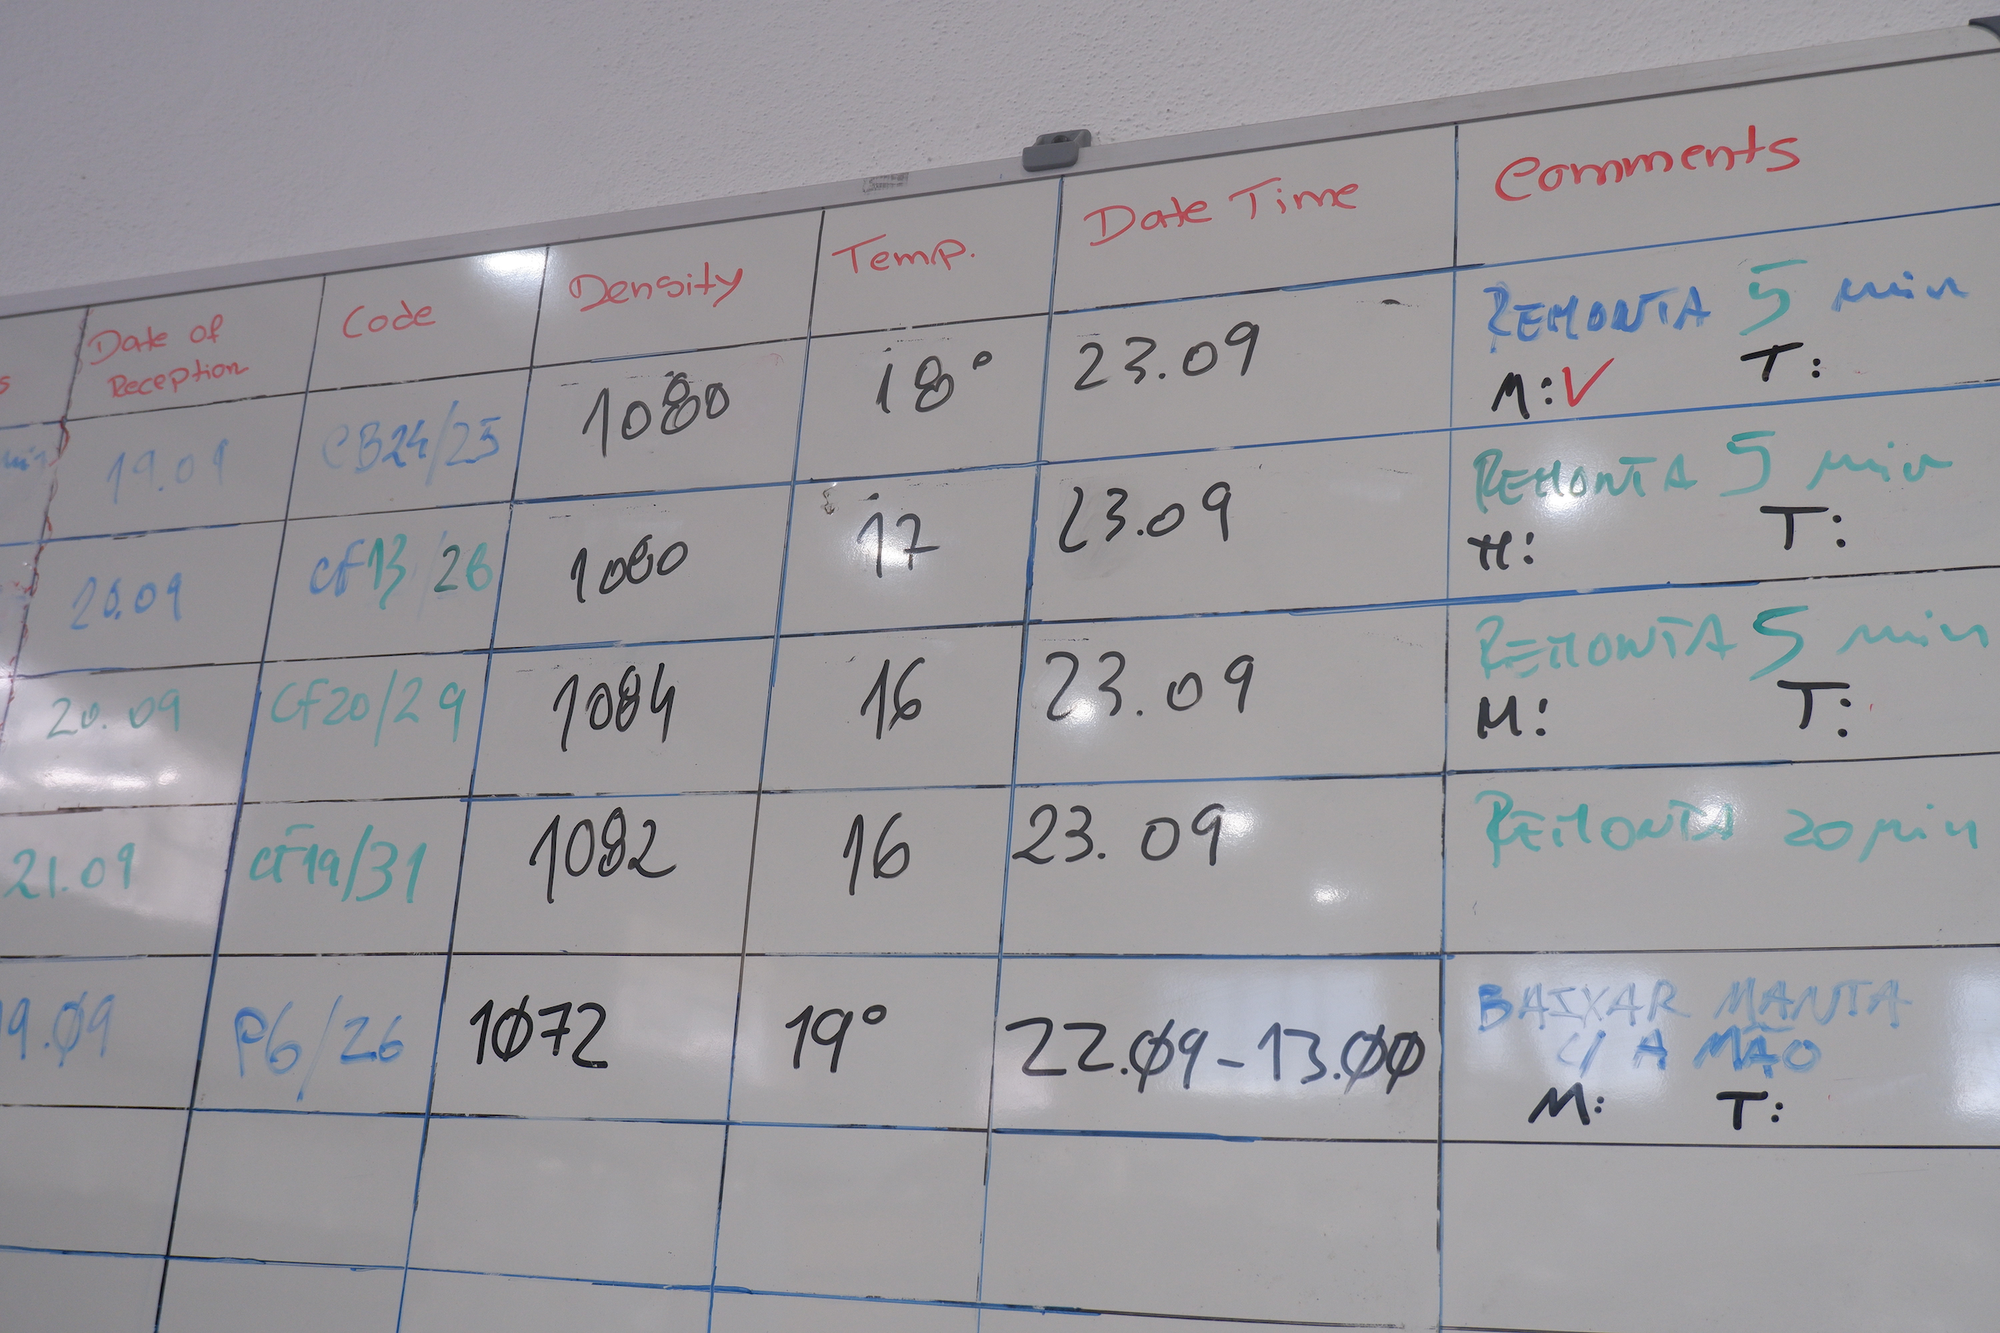 Date of Reception Code Density Temp. Date Time Comments
19.09 CB24/25 1080 18° 23.09 REMONTA 5 min
M:V T:
20.09 CF13/26 1080 17 23.09 REMONTA 5 min
M: T:
20.09 CF20/29 1084 16 23.09 REMONTA 5 min
M: T:
21.09 CF19/31 1082 16 23.09 REMONTA 20 min
9.09 P6/26 1072 19° 22.09-13.00 BAIXAR MANTA
C/ A MÃO
M: T: